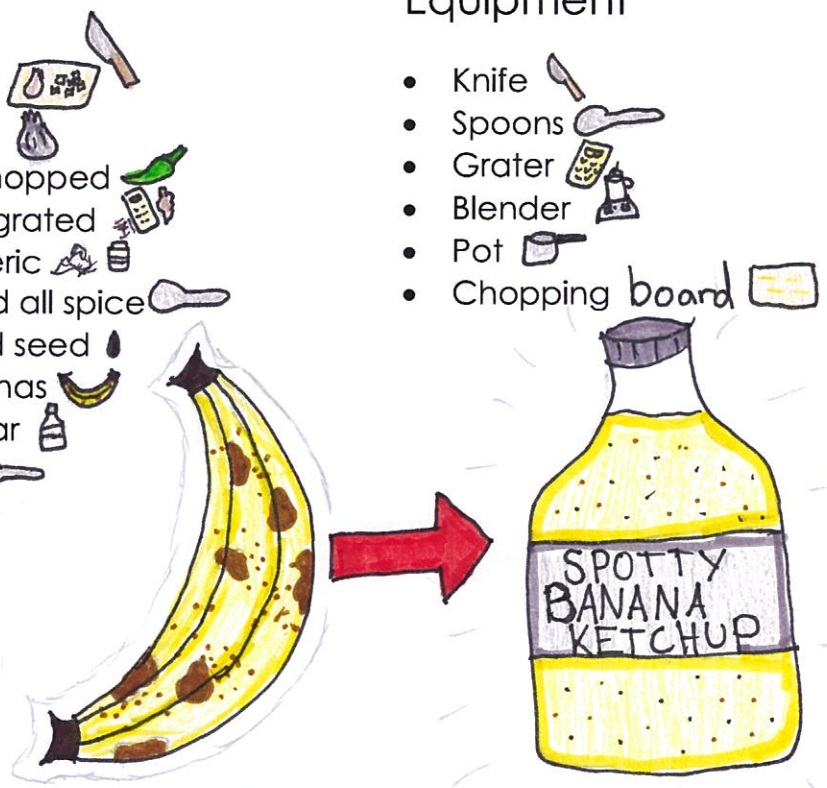 Equipment
hopped
grated
eric
d all spice
d seed
nas
ar
Knife
Spoons
Grater
Blender
Pot
Chopping board
SPOTTY
BANANA
KETCHUP